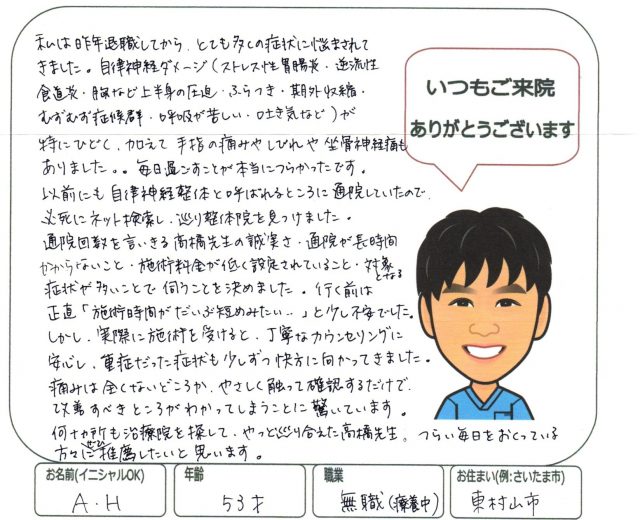 私は昨年退職してから、とても多くの症状に悩まされて
きました。自律神経ダメージ(ストレス性胃腸炎・逆流性
食道炎・胸など上半身の圧迫・ふらつき・期外収縮・
むずむず症候群・呼吸が苦しい・吐き気など)が
特にひどく、加えて手指の痛みやしびれや坐骨神経痛も
ありました。。毎日過ごすことが本当につらかったです。
以前にも自律神経整体と呼ばれるところに通院していたので、
必死にネット検索し、巡り整体院を見つけました。
通院回数を言いきる高橋先生の誠実さ・通院が長時間
かからないこと・施術料金が低く設定されていること・対象となる
症状が多いことで伺うことを決めました。行く前は
正直「施術時間がだいぶ短めみたい…」と少し不安でした。
しかし、実際に施術を受けると、丁寧なカウンセリングに
安心し、重症だった症状も少しずつ快方に向かってきました。
痛みは全くないどころか、やさしく触って確認するだけで
改善すべきところがわかってしまうことに驚いています。
何ヶ所も治療院を探して、やっと巡り合えた高橋先生。つらい毎日をおくっている
方々にぜひ推薦したいと思います。
いつもご来院
ありがとうございます
お名前(イニシャルOK)
A・H
年齢
53才
職業
無職(療養中)
お住まい(例:さいたま市)
東村山市